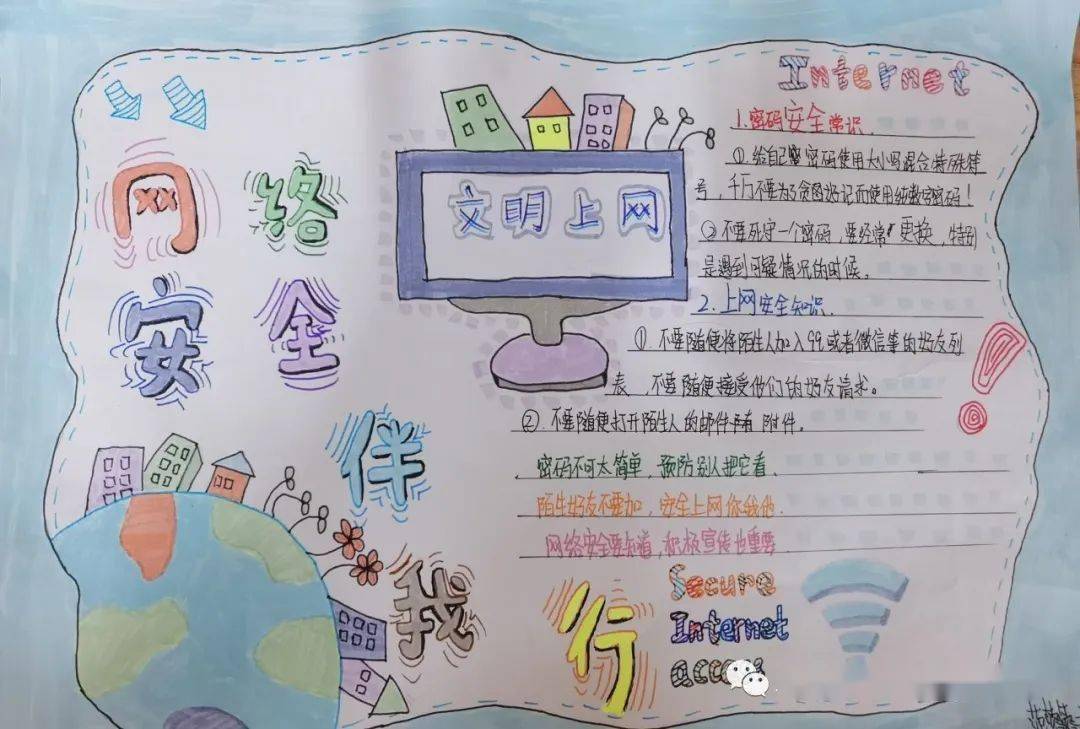 网络
安全
伴
我
行
文明上网
Internet
1.密码安全常识.
①给自己密码使用大小写混合特殊符
号,千万不要为了贪图好记而使用纯数字密码!
②不要死守一个密码,要经常更换,特别
是遇到可疑情况的时候。
2.上网安全知识.
①不要随便将陌生人加入QQ或者微信等的好友列
表,不要随便接受他们的好友请求。
②.不要随便打开陌生人的邮件 附件。
密码不可太简单,预防别人把它看.
陌生好友不要加,安全上网你我他.
网络安全要知道,积极宣传也重要.
Secure
Internet
access